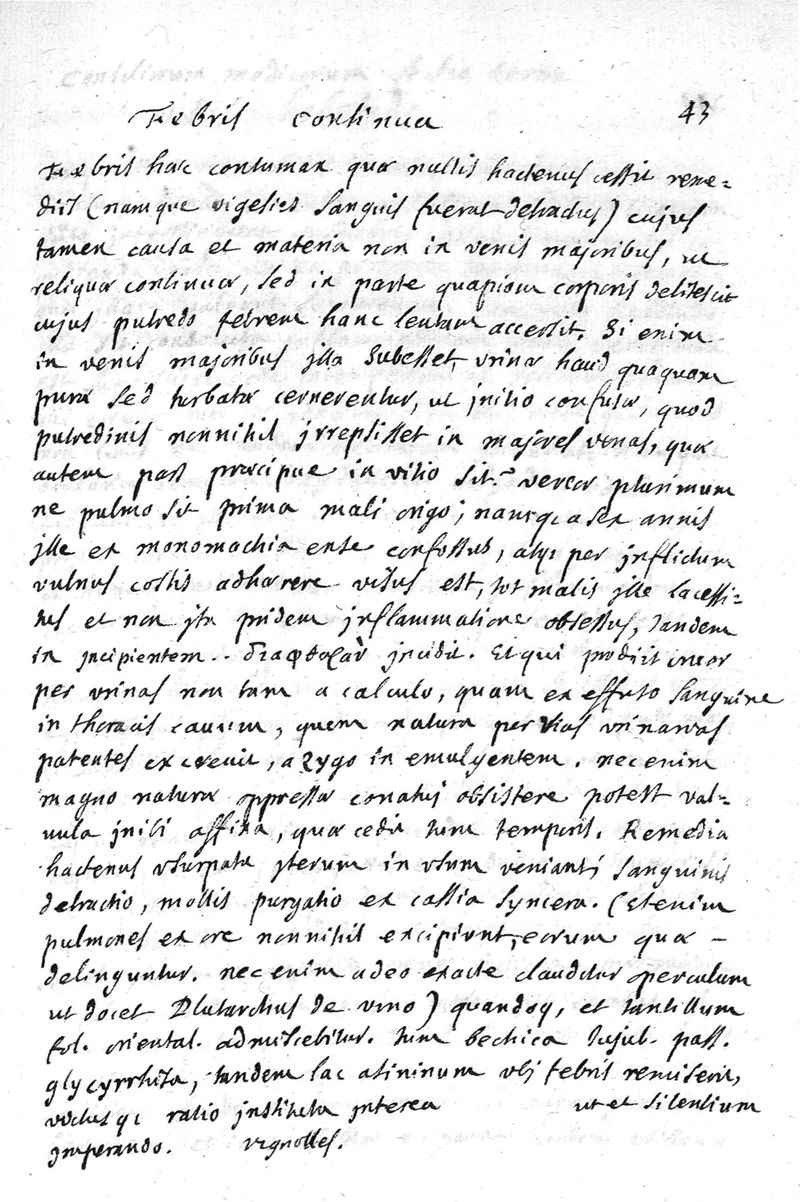 Febris continua
43
Febris haec contumax quae nullis hactenus cessit reme=
diis (namque vigesies sanguis fuerat detractus) cujus
tamen causa et materia non in venis majoribus, ut
reliquae continuae, sed in parte quapiam corporis delitescit
cujus putredo febrem hanc lentam accersit. Si enim
in venis majoribus jlla subesset, urinae haud quaquam
purae sed turbatae cernerentur, ut jnitio confusae, quod
putredinis nonnihil jrrepsisset in majores venas, quae
autem pars praecipue in vitio sit. vereor plurimum
ne pulmo sit prima mali origo; namq; a sex annis
jlle ex monomachia ense confossus, atq; per jnflictum
vulnus costis adhaerere visus est, tot malis jlle lacessi=
tus et non jta pridem jnflammatione obsessus, tandem
in jncipientem .. διαφθοραν jncidit. Et qui prodiit cruor
per urinas non tam a calculo, quam ex effuso sanguine
in thoracis cavum, quem natura per vias urinarias
patentes excrevit, azygo in emulgentem. nec enim
magno naturae oppressae conatui obsistere potest val=
vula jnibi affixa, quae cedit tum temporis. Remedia
hactenus usurpata jterum in usum veniant; sanguinis
detractio, mollis purgatio ex cassia syncera. (etenim
pulmones ex ore nonnihil excipiunt, eorum quae -
delinguntur. nec enim adeo exacte clauditur operculum
ut docet Plutarchus de vino) quandoq; et tantillum
fol. oriental. admiscebitur. tum bechica Jujub. pass.
glycyrrhiza, tandem lac asininum ubj febris remiserit,
victusq; ratio jnstituta jnterea ut et silentium
jmperando. vignolles.